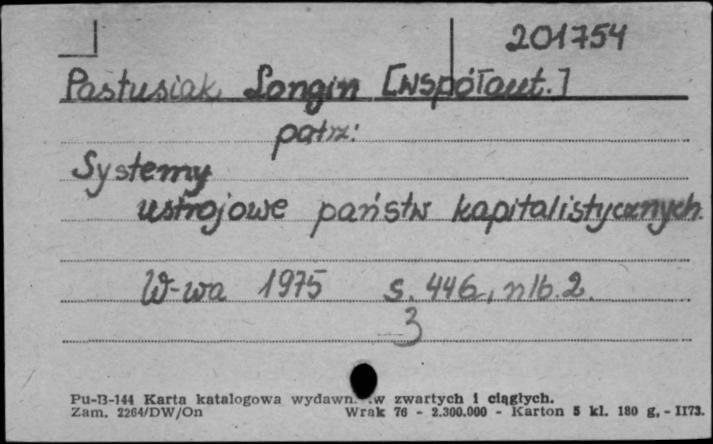 201754
Pastusiak, Longin [współaut.]
patrz:
Systemy
ustrojowe państw kapitalistycznych.
W-wa 1975 s. 446, nlb. 2.
3
Pu-B-144 Karta katalogowa wydawn. w zwartych i ciągłych.
Zam. 2264/DW/On Wrak 76 - 2.300.000 - Karton 5 kl. 180 g, - II73.